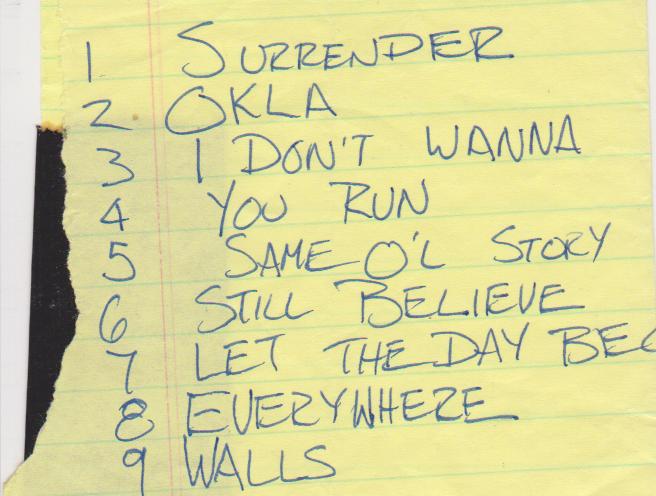 1 SURRENDER
2 OKLA
3 I DON'T WANNA
4 YOU RUN
5 SAME O'L STORY
6 STILL BELIEVE
7 LET THE DAY BEG
8 EVERYWHERE
9 WALLS